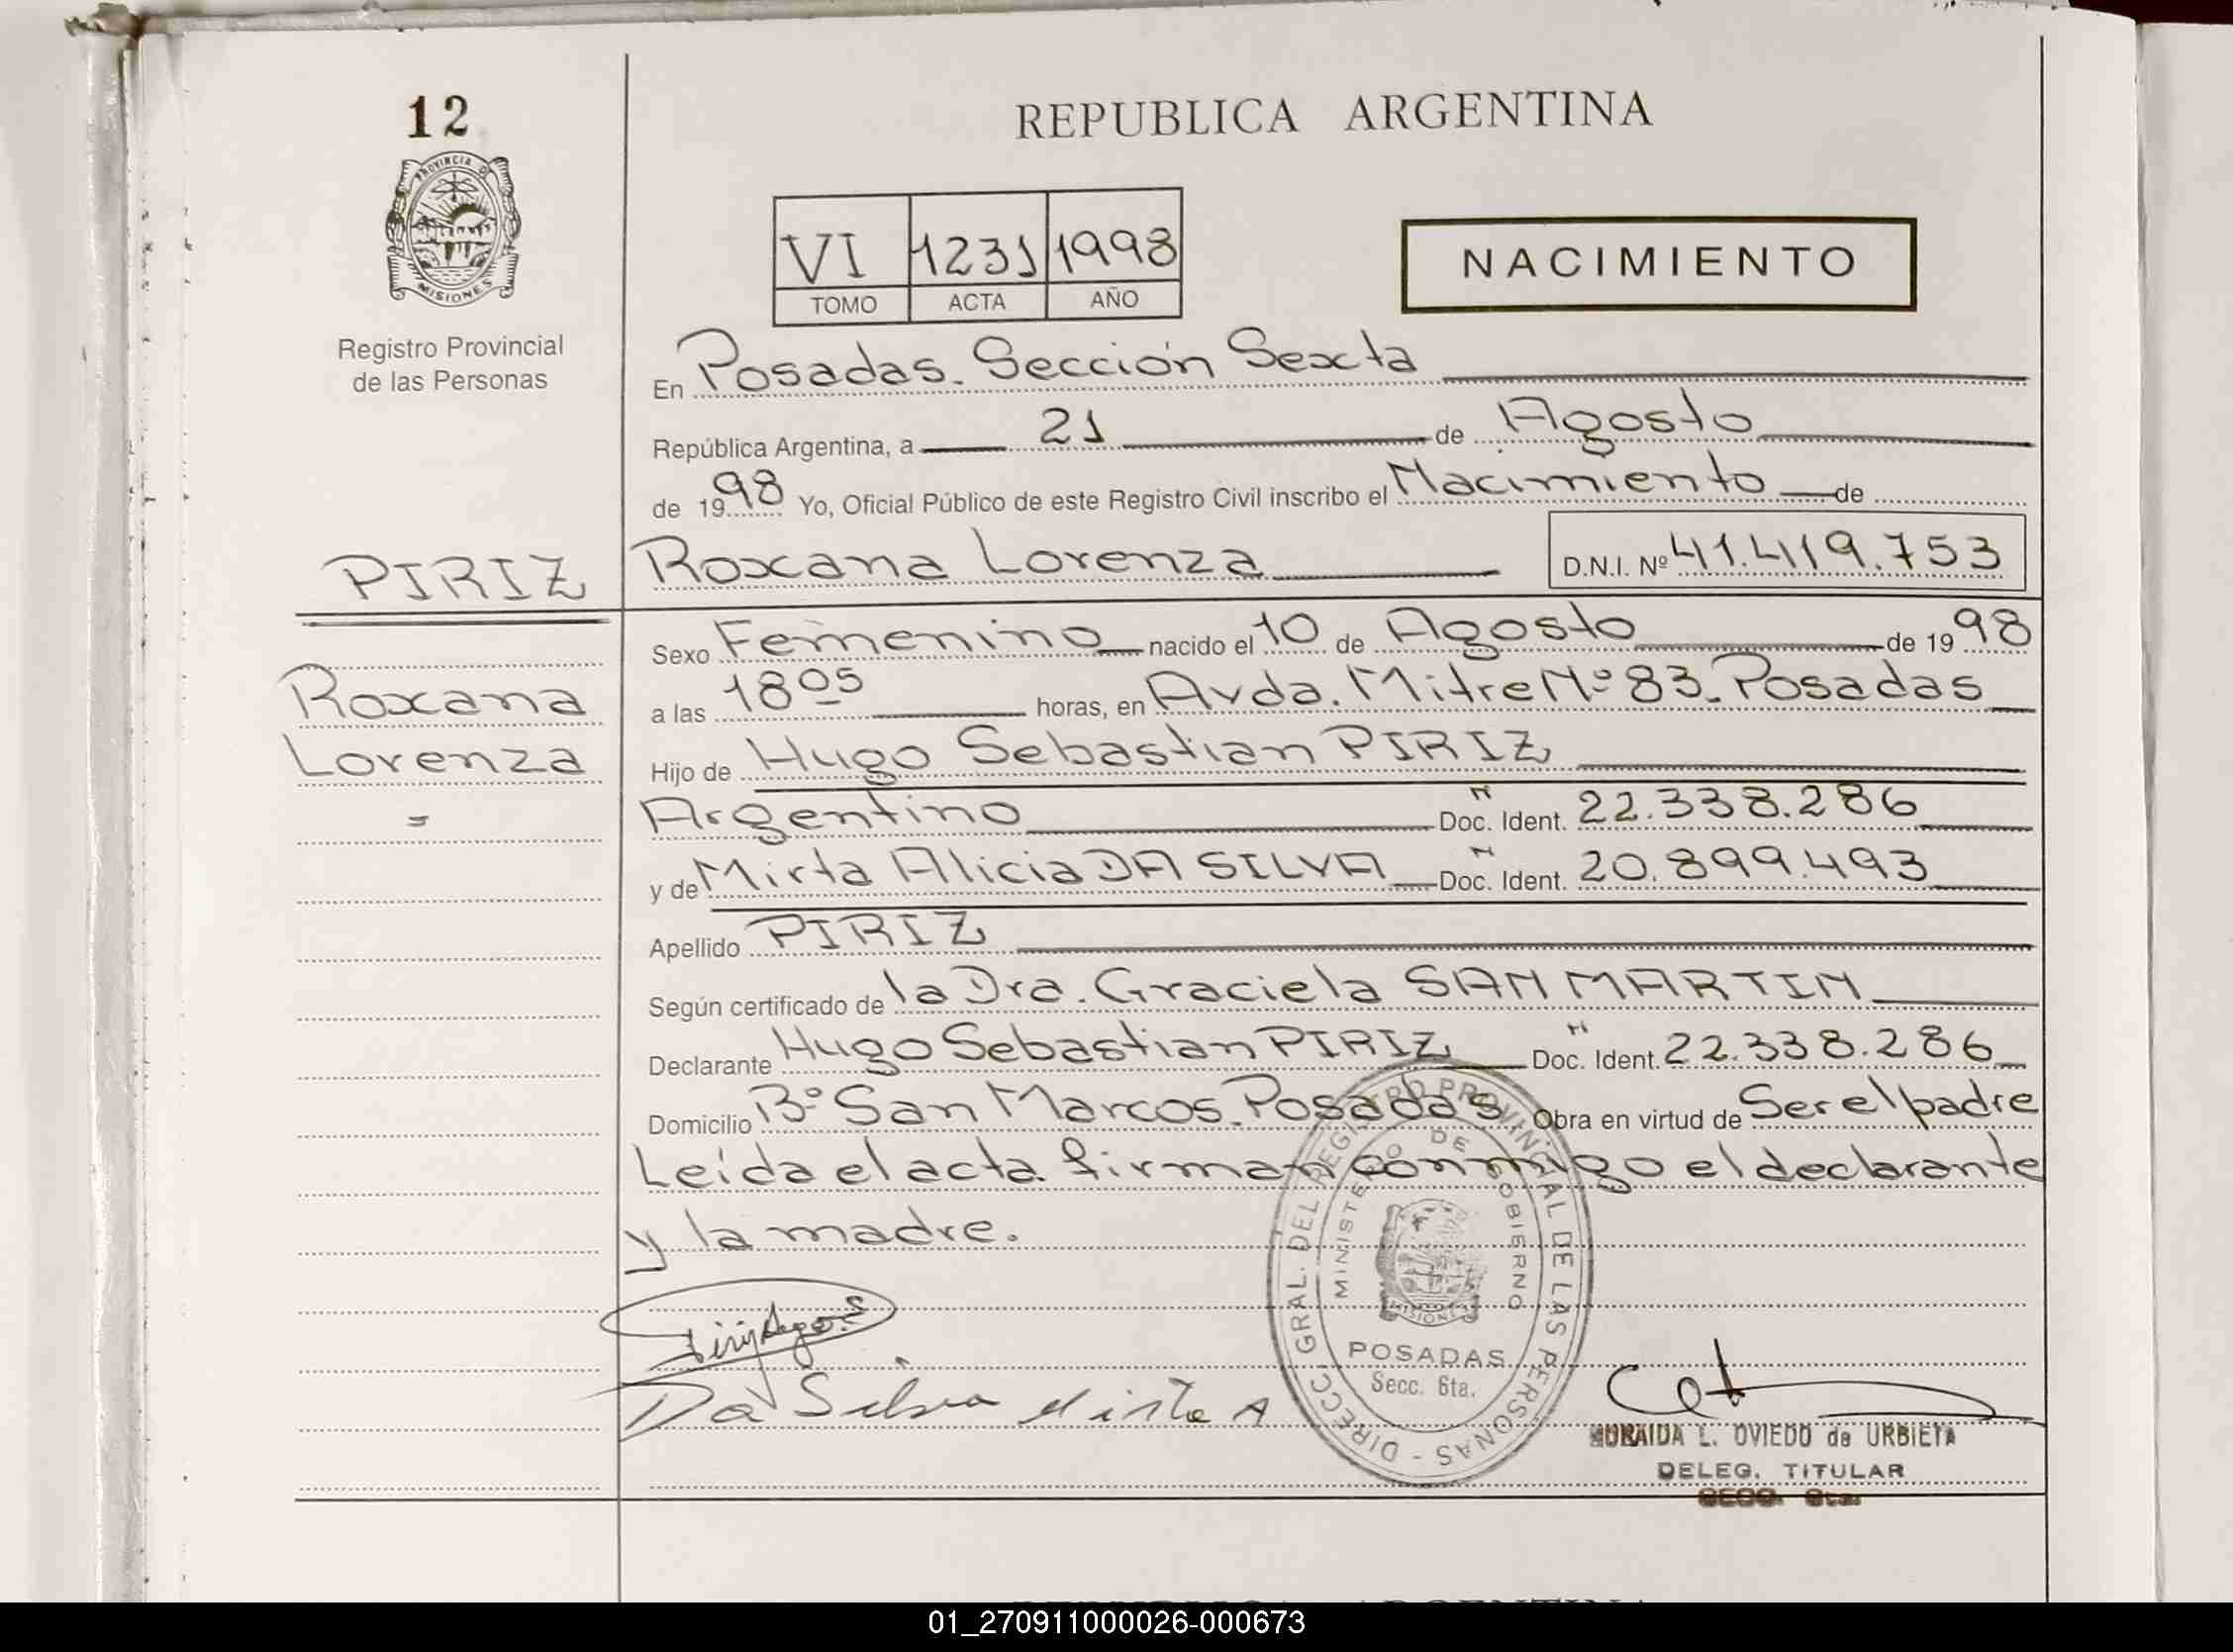 12
REPUBLICA ARGENTINA
PROVINCIA DE
MISIONES
VI 1231 1998
TOMO ACTA AÑO
NACIMIENTO
Registro Provincial
de las Personas
En Posadas. Sección Sexta
República Argentina, a 21 de Agosto
de 1998 Yo, Oficial Público de este Registro Civil inscribo el Nacimiento de
PIRIZ Roxana Lorenza D.N.I. Nº 41.419.753
Sexo Femenino nacido el 10 de Agosto de 1998
Roxana a las 18 05 horas, en Avda. Mitre Nº 83. Posadas
Lorenza Hijo de Hugo Sebastian PIRIZ
= Argentino N Doc. Ident. 22.338.286
y de Mirta Alicia DA SILVA N Doc. Ident. 20.899.493
Apellido PIRIZ
Según certificado de la Dra. Graciela SAN MARTIN
Declarante Hugo Sebastian PIRIZ N Doc. Ident. 22.338.286
Domicilio Bº San Marcos. Posadas Obra en virtud de Ser el padre
Leída el acta firman conmigo el declarante
y la madre.
DIRECC. GRAL. DEL REGISTRO PROVINCIAL DE LAS PERSONAS -
MINISTERIO DE GOBIERNO
MISIONES
POSADAS
Secc. 6ta.
Da Silva Mirta A
L. OVIEDO de URBIETA
DELEG. TITULAR
SECC. 6ta.
01_270911000026-000673